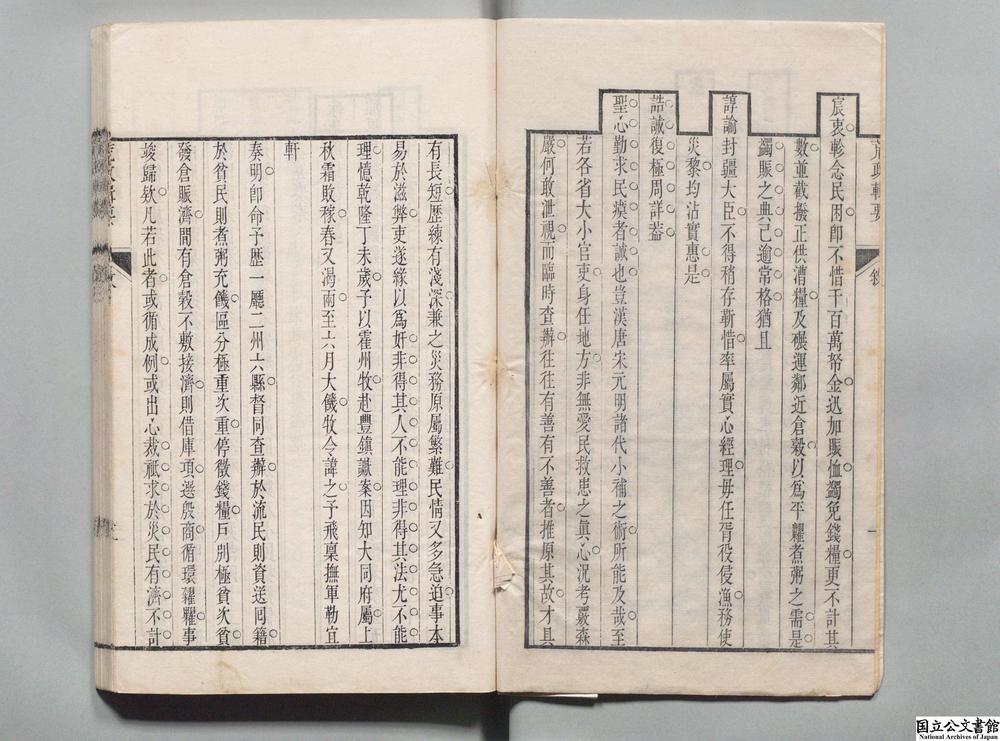 荒政輯要
宸衷軫念民困卽不惜千百萬帑金迅加賑恤蠲免錢糧更不計其
數並截撥正供漕糧及碾運鄰近倉穀以爲平糶煮粥之需是
蠲賑之典已逾常格猶且
諄諭封疆大臣不得稍存靳惜率屬實心經理毋任胥役侵漁務使
災黎均沾實惠是
誥誡復極周詳葢
聖心勤求民瘼者誠也豈漢唐宋元明諸代小補之術所能及哉至
若各省大小官吏身任地方非無愛民救患之眞心況考覈森
嚴何敢泄視而臨時查辦往往有善有不善者推原其故才具
有長短歷練有淺深兼之災務原屬繁難民情又多急迫事本
易於滋弊吏遂緣以爲奸非得其人不能理非得其法尤不能
理憶乾隆丁未歲予以霍州牧赴豐鎮讞案因知大同府屬上
秋霜敗稼春又渴雨至六月大饑牧令諱之予飛稟撫軍勒宜
軒
奏明卽命予歷一廳二州六縣督同查辦於流民則資送囘籍
於貧民則煮粥充饑區分極重次重停徵錢糧戶別極貧次貧
發倉賑濟間有倉穀不敷接濟則借庫項選殷商循環糴糶事
竣歸欵凡若此者或循成例或出心裁祗求於災民有濟不計
国立公文書館
National Archives of Japan